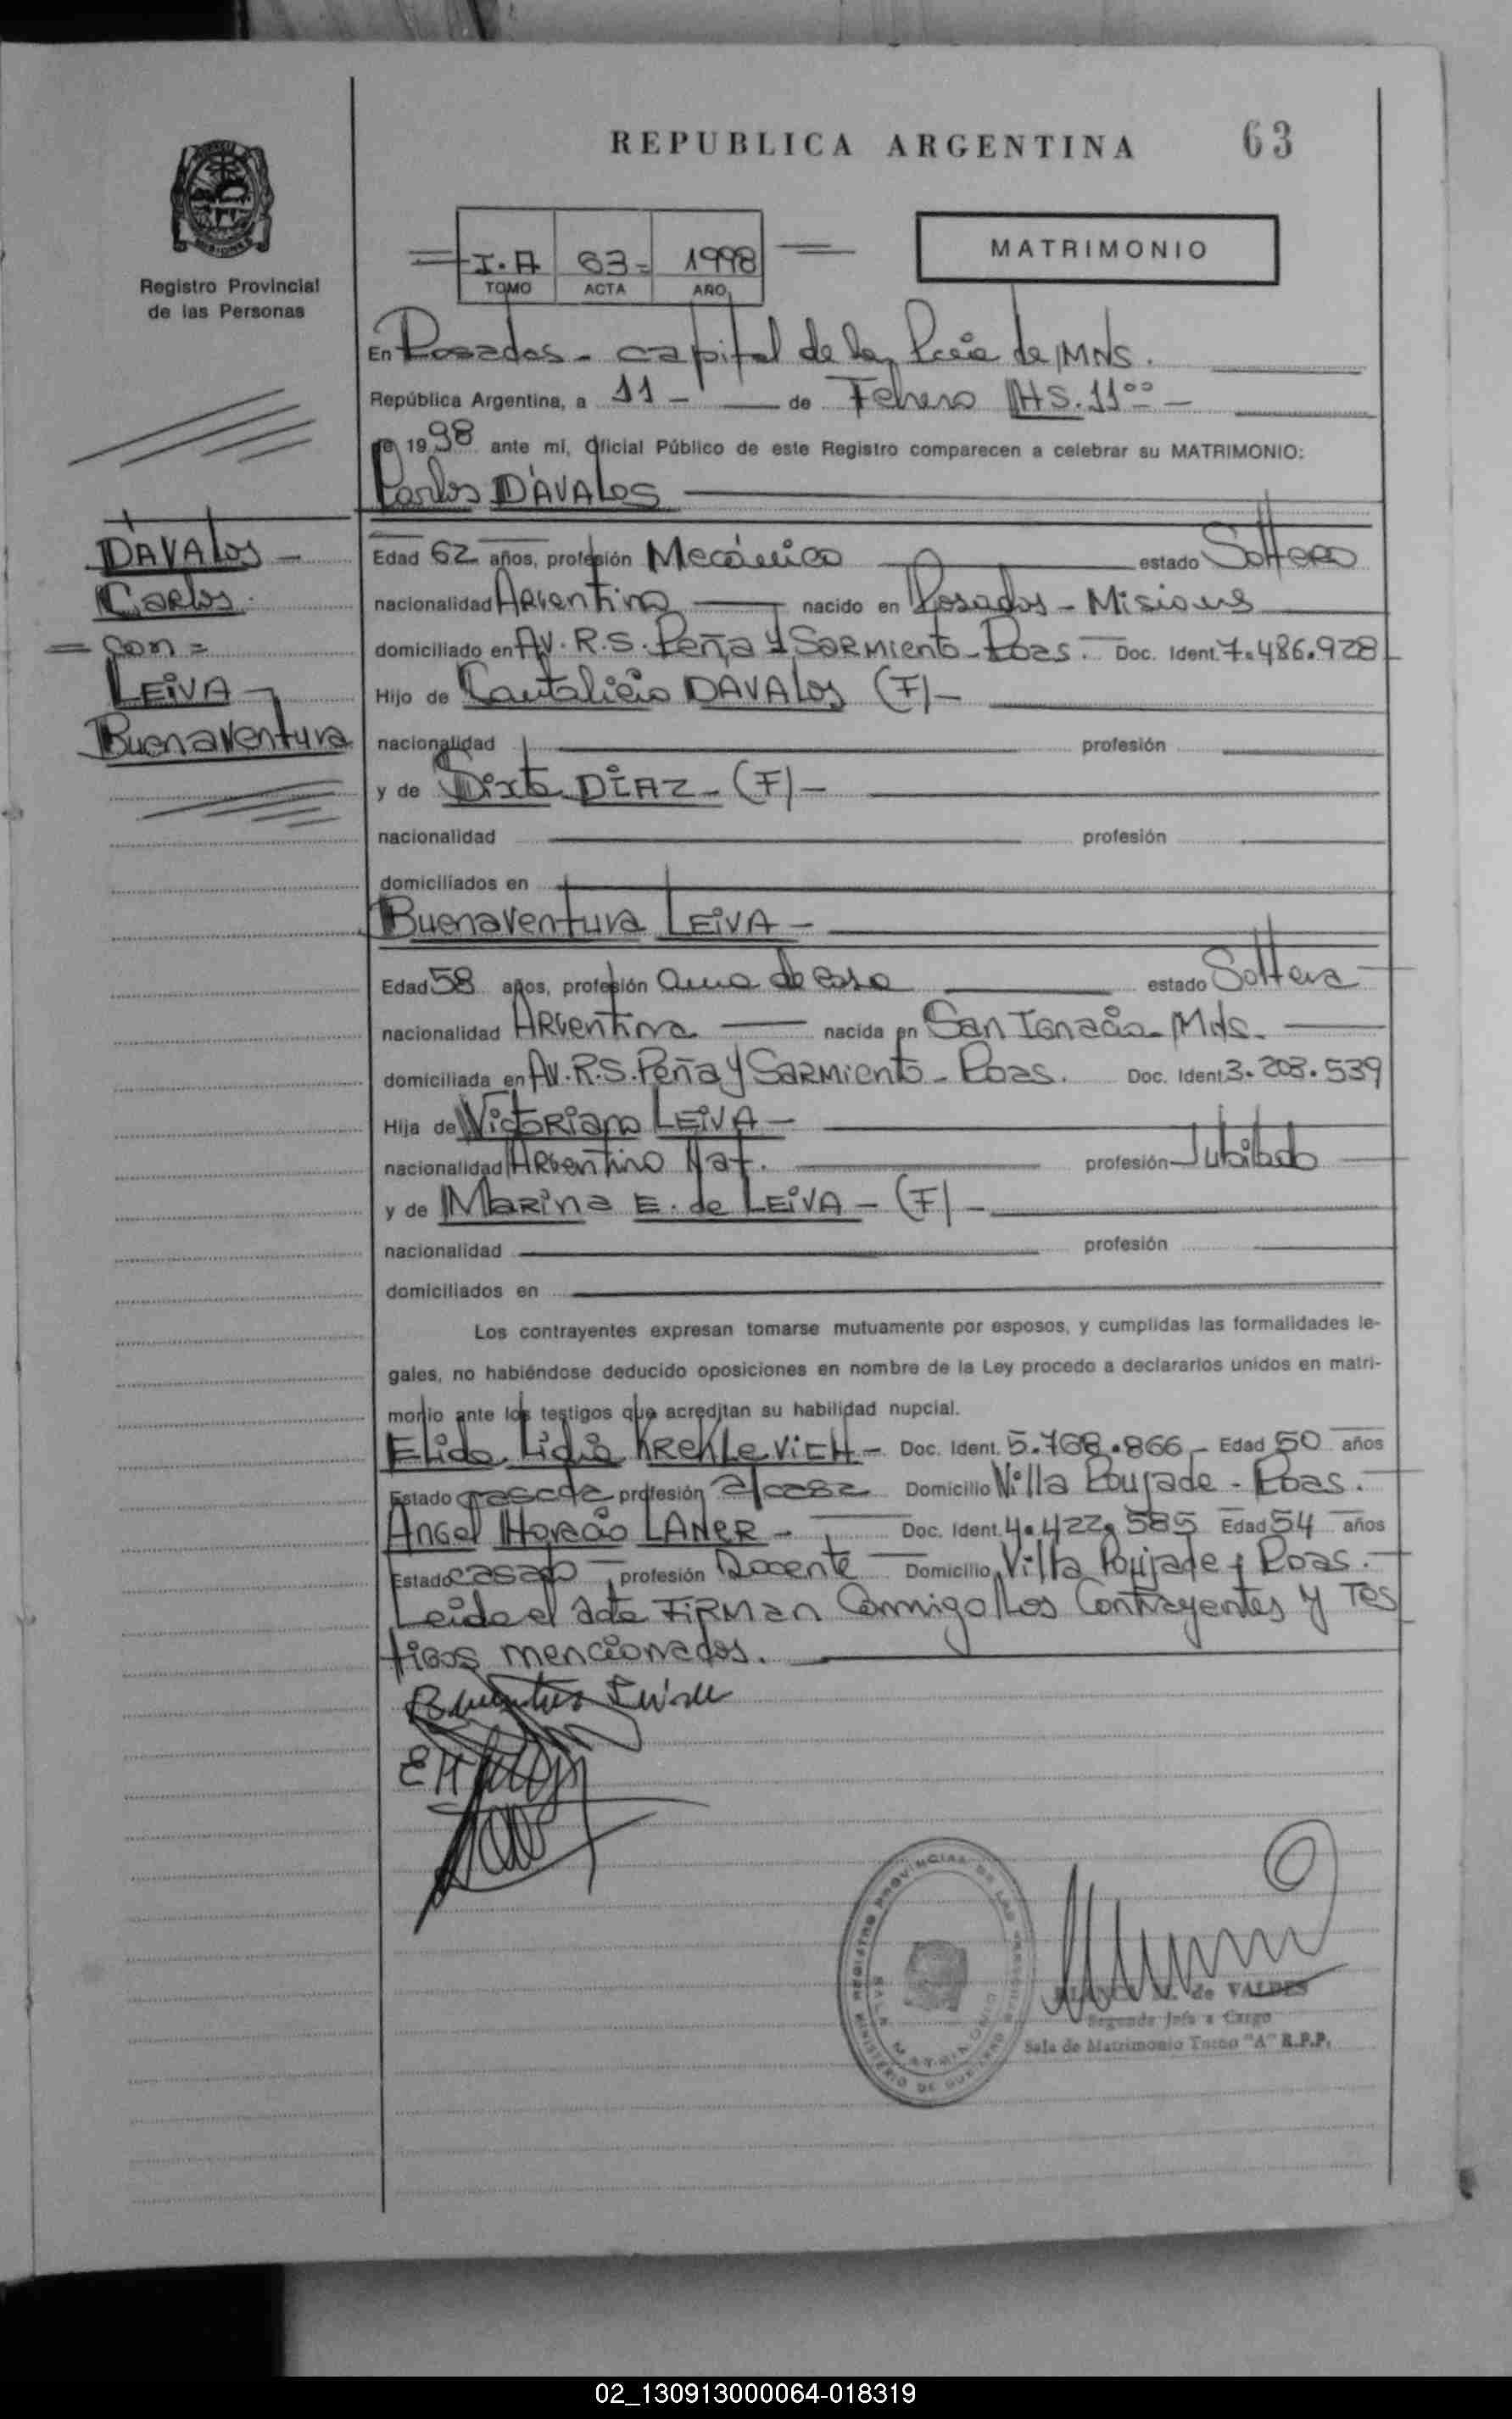 REPUBLICA ARGENTINA 63
Registro Provincial
de las Personas
I.A 63= 1998
TOMO ACTA AÑO
MATRIMONIO
En Posadas - capital de la Pcia de MNS.
República Argentina, a 11 - de Febrero HS. 11⁰⁰ -
de 1998 ante mí, Oficial Público de este Registro comparecen a celebrar su MATRIMONIO:
Carlos DÁVALOS
DAVALOS -
Carlos.
= con =
LEIVA -
Buenaventura
Edad 62 años, profesión Mecánico estado Soltero
nacionalidad Argentina nacido en Posadas - Misiones
domiciliado en AV. R.S. Peña y SARMIENTO - Poas. - Doc. Ident. 7.486.928
Hijo de Cantalicio DAVALOS (F) -
nacionalidad profesión
y de Sixta DÍAZ - (F) -
nacionalidad profesión
domiciliados en
Buenaventura LEIVA -
Edad 58 años, profesión ama de casa estado Soltera
nacionalidad Argentina nacida en San Ignacio - Mns.
domiciliada en AV. R.S. Peña y SARMIENTO - Poas. Doc. Ident. 3.203.539
Hija de Victoriano LEIVA -
nacionalidad Argentino Nat. profesión Jubilado
y de Marina E. de LEIVA - (F) -
nacionalidad profesión
domiciliados en
Los contrayentes expresan tomarse mutuamente por esposos, y cumplidas las formalidades le-
gales, no habiéndose deducido oposiciones en nombre de la Ley procedo a declararlos unidos en matri-
monio ante los testigos que acreditan su habilidad nupcial.
Elida Lidia KREKLEVICH - Doc. Ident. 5.768.866 - Edad 50 años
Estado casada profesión a/casa Domicilio Villa Poujade - Poas.
Angel Horacio LANER - Doc. Ident. 4.422.585 Edad 54 años
Estado casado profesión Docente Domicilio Villa Poujade - Poas.
Leida el acta FIRMAN Conmigo los Contrayentes y Tes
tigos mencionados.
REGISTRO PROVINCIAL DE LAS PERSONAS
MINISTERIO DE GOBIERNO
SALA MATRIMONIO
M. de VALDES
Segunda Jefa a Cargo
Sala de Matrimonio Turno "A" R.P.P.
02_130913000064-018319